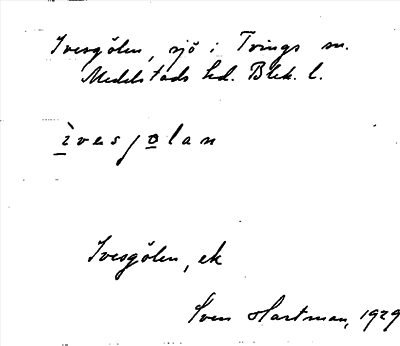 Ivesgölen, sjö i Tvings sn.
Medelstads hd. Blek. l.
ìvesjola n
Ivesgölen, ek
Sven Hartman, 1929